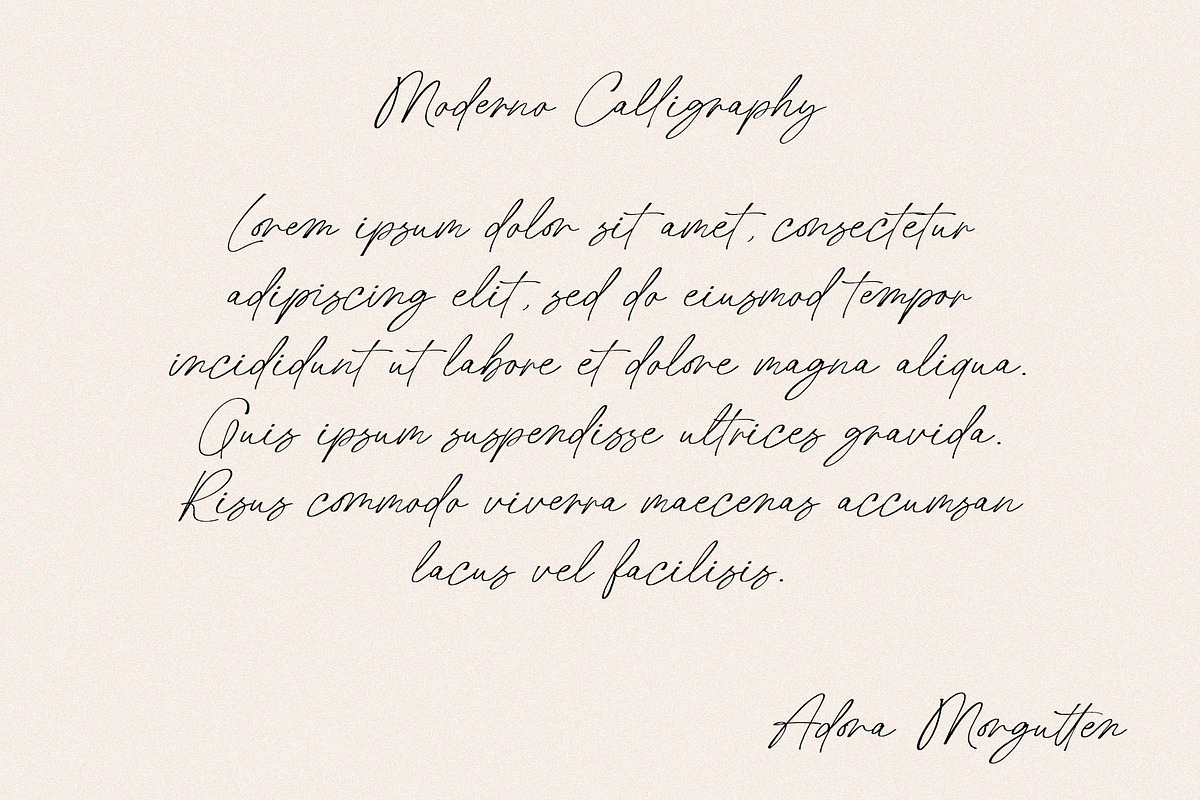 Moderno Calligraphy
Lorem ipsum dolor sit amet, consectetur
adipiscing elit, sed do eiusmod tempor
incididunt ut labore et dolore magna aliqua.
Quis ipsum suspendisse ultrices gravida.
Risus commodo viverra maecenas accumsan
lacus vel facilisis.
Adora Morgutten